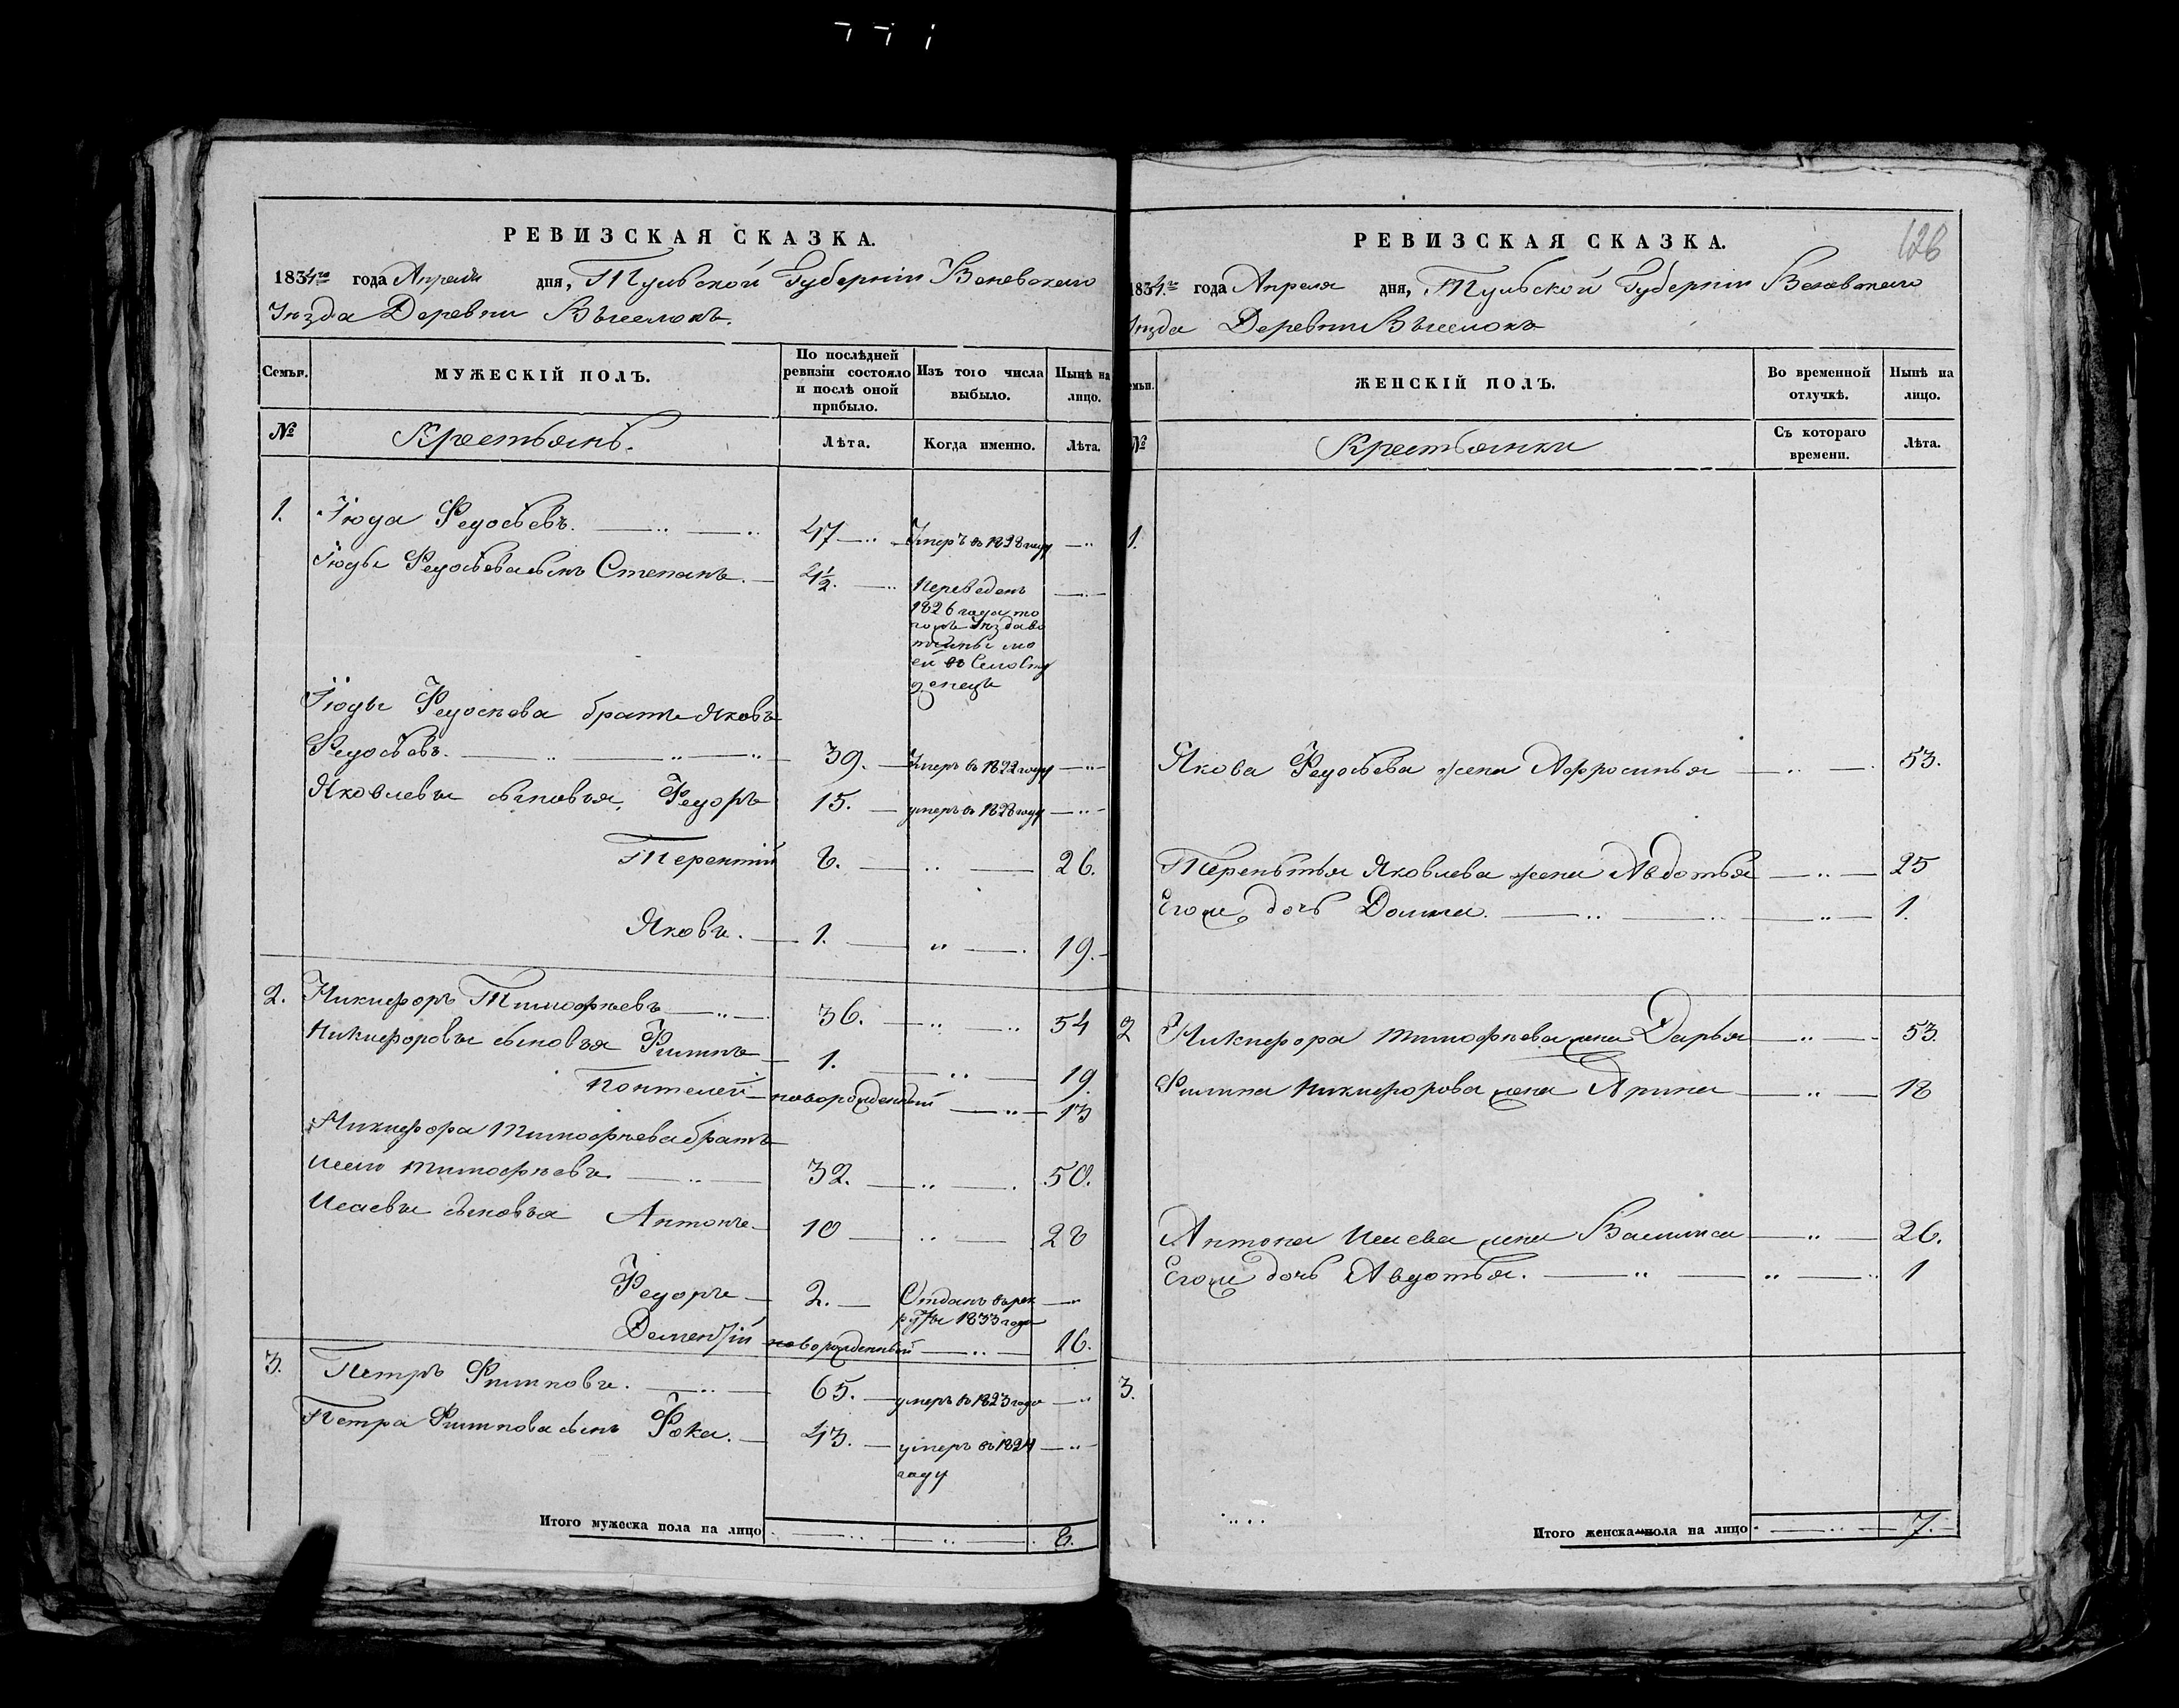 РЕВИЗСКАЯ СКАЗКА.
1834го года Апреля дня, Тульской Губерніи Веневскаго
Уѣзда Деревни Выселокъ.
Семьи. МУЖЕСКІЙ ПОЛЪ. По послѣдней ревизіи состояло и послѣ оной прибыло. Изъ того числа выбыло. Нынѣ на лицо.
№ Крестьянъ. Лѣта. Когда именно. Лѣта.
1. Июда Федосѣевъ. 47 Умеръ въ 1828 году
Июды Федосѣева сынъ Степанъ. 4½. Переведенъ
1826 года то
гожъ Уѣзда во
тчины мо
ей въ Село Сту
денецъ
Июды Федосѣева братъ Яковъ
Федосѣевъ. 39. Умеръ въ 1822 году
Яковлевы сыновья, Федоръ 15. умеръ въ 1828 году
Терентій 8. 26.
Яковъ. 1. 19.
2. Никифоръ Тимофѣевъ 36. 54
Никифоровы сыновья Филипъ 1. 19.
Понтелей новорожденный 13
Никифора Тимофѣева братъ
Исай Тимофѣевъ. 32. 50.
Исаевы сыновья Антонъ 10 28
Федоръ 2. Отданъ въ рек
руты 1833 года
Дементій новорожденный 16.
3. Петръ Филиповъ. 65. умеръ въ 1823 году
Петра Филипова сынъ Фока. 43. умеръ въ 1824
году
Итого мужеска пола на лицо 8.
126
РЕВИЗСКАЯ СКАЗКА.
1834.го года Апреля дня, Тульской Губерніи Веневскаго
Уѣзда Деревни Выселокъ
Семьи. ЖЕНСКІЙ ПОЛЪ. Во временной отлучкѣ. Нынѣ на лицо.
№ Крестьянки Съ котораго времени. Лѣта.
1.
Якова Федосѣева жена Афросинья 53.
Терентья Яковлева жена Авдотья 25
Егожъ дочь Домна. 1.
2 Никифора Тимофѣева жена Дарья 53.
Филипа Никифорова жена Арина 18
Антона Исаева жена Василиса 26.
Егожъ дочь Авдотья. 1
3.
Итого женска пола на лицо 7.